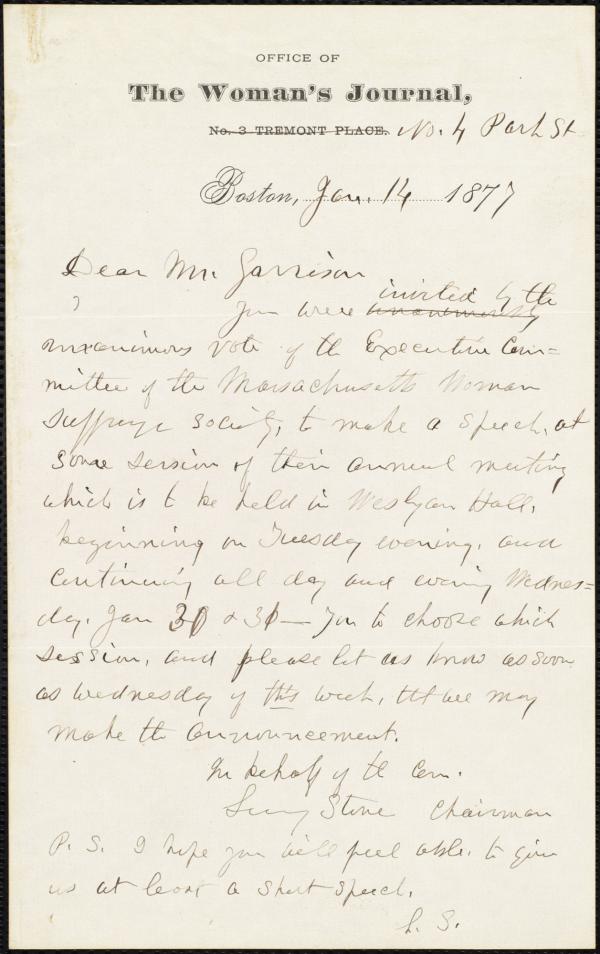 OFFICE OF
The Woman's Journal,
No. 3 TREMONT PLACE. No. 4 Park St
Boston, Jan. 14 1877
Dear Mr. Garrison
You were unanimously invited by the
unanimous vote of the Executive Com=
mittee of the Massachusetts Woman
Suffrage Society, to make a speech, at
some session of their annual meeting
which is to be held in Wesleyan Hall,
beginning on Tuesday evening, and
continuing all day and evening Wednes=
day, Jan 30 & 31— You to choose which
session, and please let us know as soon
as Wednesday of this week, tht we may
make the announcement.
In behalf of the Com.
Lucy Stone Chairman
P. S. I hope you will feel able, to give
us at least a short speech.
L. S.